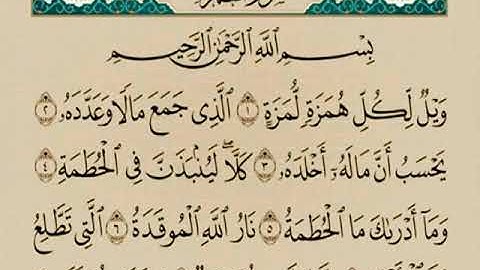 بِسْمِ اللَّهِ الرَّحْمَٰنِ الرَّحِيمِ
وَيْلٌ لِّكُلِّ هُمَزَةٍ لُّمَزَةٍ ۝١ الَّذِي جَمَعَ مَالًا وَعَدَّدَهُۥ ۝٢
يَحْسَبُ أَنَّ مَالَهُۥٓ أَخْلَدَهُۥ ۝٣ كَلَّا ۖ لَيُنۢبَذَنَّ فِي الْحُطَمَةِ ۝٤
وَمَآ أَدْرَىٰكَ مَا الْحُطَمَةُ ۝٥ نَارُ اللَّهِ الْمُوقَدَةُ ۝٦ الَّتِي تَطَّلِعُ